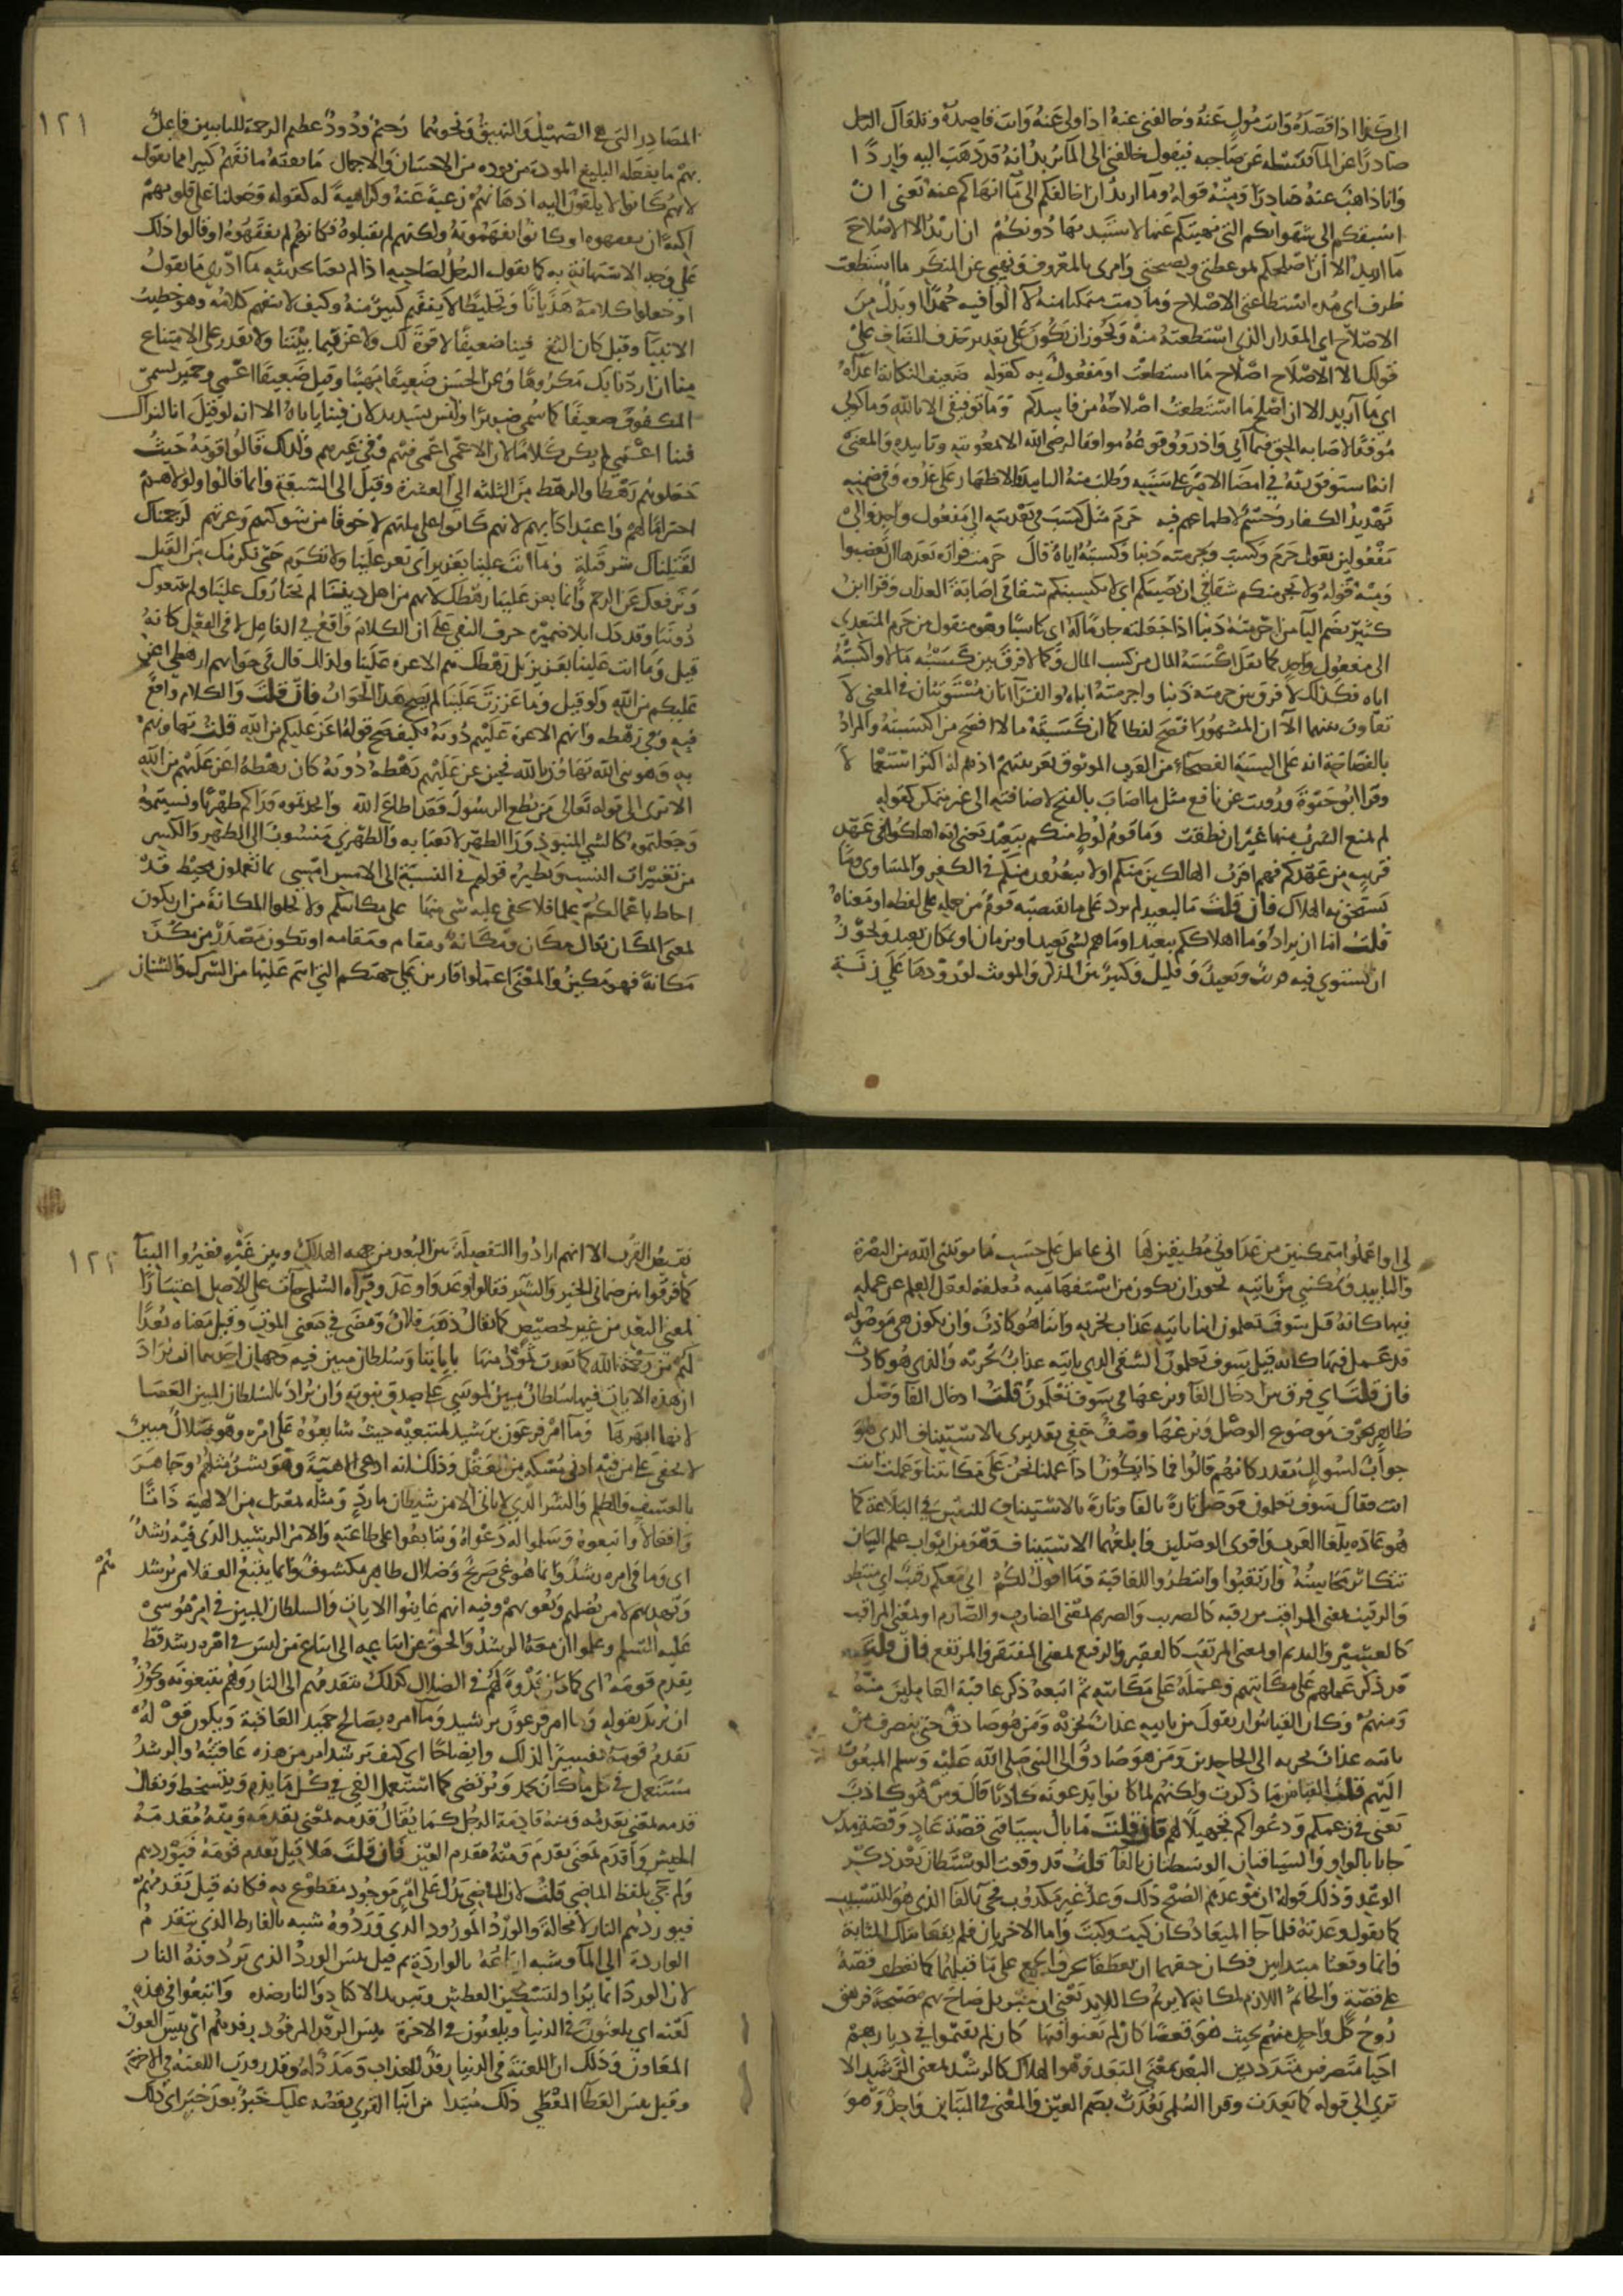 الى كذا اذا قصده وانت مول عنه وخالفني عنه اذا ولى عنه وانت قاصده ويلقاك الرجل
صادرا عن الماء فتسئله عن صاحبه فيقول خالفني الى الماء يريد انه قد ذهب اليه واردا
وانا ذاهب عنه صادرا ومنه قوله وما اريد ان اخالفكم الى ما انهاكم عنه يعني ان
اسبقكم الى شهواتكم التي نهيتكم عنها لاستبد بها دونكم ان اريد الا الاصلاح
ما اريد الا ان اصلحكم بموعظتي ونصيحتي وامري بالمعروف ونهيي عن المنكر ما استطعت
ظرف اي مدة استطاعتي الاصلاح وما دمت متمكنا منه لا آلوا فيه جهدا او بدل من
الاصلاح اي المقدار الذي استطعته منه ويجوز ان يكون على تقدير حذف المضاف على
قولك الا الاصلاح اصلاح ما استطعت او مفعول به كقوله ضعيف النكاية اعداءه
اي ما اريد الا ان اصلح ما استطعت اصلاحه من فاسدكم وما توفيقي الا بالله وما كوني
موفقا لاصابة الحق فيما آتي واذر ووقوعه موافقا لرضى الله الا بمعونته وتاييده والمعنى
انه استوفق ربه في امضاء الامر على سننه وطلب منه التاييد والاظهار على عدوه وفي ضمنه
تهديد الكفار وحسم لاطماعهم فيه جرم مثل كسب في تعديته الى مفعول واحد والى
مفعولين تقول جرم ذنبا وكسبه وجرمته ذنبا وكسبته اياه قال جرمت فزارة بعدها ان يغضبوا
ومنه قوله ولا يجرمنكم شقاقي ان يصيبكم اي لا يكسبنكم شقاقي اصابة العذاب وقرا ابن
كثير بضم اليا من اجرمته ذنبا اذا جعلته جارما له اي كاسبا وهو منقول من جرم المتعدي
الى مفعول واحد كما نقل اكسبه المال من كسب المال وكما لا فرق بين كسبته مالا واكسبته
اياه فكذلك لا فرق بين جرمته ذنبا واجرمته اياه والقراءتان مستويتان في المعنى لا
تفاوت بينهما الا ان المشهورة افصح لفظا كما ان كسبته مالا افصح من اكسبته والمراد
بالفصاحة انه على السنة الفصحاء من العرب الموثوق بعربيتهم ادور وهم له اكثر استعمالا
وقرا ابو حيوة ورويت عن نافع مثل ما اصاب بالفتح لاضافته الى غير متمكن كقوله
لم يمنع الشرب منها غير ان نطقت وما قوم لوط منكم ببعيد يعني انهم اهلكوا في عهد
قريب من عهدكم فهم اقرب الهالكين منكم او لا يبعدون منكم في الكفر والمساوي وما
يستحق به الهلاك فان قلت ما لبعيد لم يرد على ما يقتضيه قوم من حمله على لفظه او معناه
قلت اما ان يراد وما اهلاكهم ببعيد او ما هم بشي بعيد او بزمان او مكان بعيد ويجوز
ان يستوي فيه قريب وبعيد وقليل وكثير بين المذكر والمونث لورودها على زنة
١٢١
المصادر التي هي الصهيل والنهيق ونحوهما رحيم ودود عظيم الرحمة للتايبين فاعل
بهم ما يفعله البليغ المودة بمن يوده من الاحسان والاجمال ما نفقه ما نفهم كثيرا مما تقول
لانهم كانوا لا يلقون اليه اذهانهم رغبة عنه وكراهية له كقوله وجعلنا على قلوبهم
اكنة ان يفقهوه او كانوا يفهمونه ولكنهم لم يقبلوه فكانهم لم يفقهوه او قالوا ذلك
على وجه الاستهانة به كما يقول الرجل لصاحبه اذا لم يعبا بحديثه ما ادري ما تقول
او جعلوا كلامه هذيانا وتخليطا لا ينفهم كثير منه وكيف لا ينفهم كلامه وهو خطيب
الانبياء وقيل كان الثغ فينا ضعيفا لا قوة لك ولا عز فيما بيننا ولا تقدر على الامتناع
منا ان اردنا بك مكروها وعن الحسن ضعيفا مهينا وقيل ضعيفا اعمى وحمير تسمي
المكفوف ضعيفا كما سمي ضريرا وليس بسديد لان فينا ياباه الا انه لو قيل انا لنراك
فينا اعمى لم يكن كلاما لان الاعمى اعمى فيهم وفي غيرهم ولذلك قالوا قومه حيث
جعلوهم رهطا والرهط من الثلثة الى العشرة وقيل الى السبعة وانما قالوا ولولاهم
احتراما لهم واعتدادا بهم لانهم كانوا على ملتهم لا خوفا من شوكتهم وعزتهم لرجمناك
لقتلناك شر قتلة وما انت علينا بعزيز اي تعز علينا ولا تكرم حتى نكرمك من القتل
ونرفعك عن الرجم وانما يعز علينا رهطك لانهم من اهل ديننا لم يختاروك علينا ولم يتبعوك
دوننا وقد دل ايلاء ضميره حرف النفي على ان الكلام واقع في الفاعل لا في الفعل كانه
قيل وما انت علينا بعزيز بل رهطك هم الاعزة علينا ولذلك قال في جوابهم ارهطي اعز
عليكم من الله ولو قيل وما عززت علينا لم يصح هذا الجواب فان قلت والكلام واقع
فيه وفي رهطه وانهم الاعزة عليهم دونه فكيف صح قوله اعز عليكم من الله قلت تهاونهم
به وهو نبي الله تهاون بالله فحين عز عليهم رهطه دونه كان رهطه اعز عليهم من الله
الا ترى الى قوله تعالى من يطع الرسول فقد اطاع الله واتخذتموه وراءكم ظهريا ونسيتموه
وجعلتموه كالشي المنبوذ وراء الظهر لا يعبا به والظهري منسوب الى الظهر والكسر
من تغييرات النسب ونظيره قولهم في النسبة الى الامس امسي بما تعملون محيط قد
احاط باعمالكم علما فلا يخفى عليه شي منها على مكانتكم ولا تخلوا المكانة من ان يكون
بمعنى المكان يقال مكان ومكانة ومقام ومقامة او تكون مصدرا من مكن
مكانة فهو مكين والمعنى اعملوا قارين على جهتكم التي انتم عليها من الشرك والشنان
لي او اعملوا متمكنين من عداوتي مطيقين لها اني عامل على حسب ما يوتيني الله من النصرة
والتاييد ويمكنني من ياتيه يجوز ان يكون من استفهامية معلقة لفعل العلم عن عمله
فيها كانه قيل سوف تعلمون اينا ياتيه عذاب يخزيه واينا هو كاذب وان يكون هي موصولة
قد عمل فيها كانه قيل سوف تعلمون الشقي الذي ياتيه عذاب يخزيه والذي هو كاذب
فان قلت اي فرق بين ادخال الفاء ونزعها في سوف تعلمون قلت ادخال الفاء وصل
ظاهر بحرف موضوع للوصل ونزعها وصف خفي تقديري بالاستيناف الذي هو
جواب لسوال مقدر كانهم قالوا فما ذا يكون اذا عملنا نحن على مكانتنا وعملت انت
انت فقال سوف تعلمون فوصل تارة بالفاء وتارة بالاستيناف للتفنن في البلاغة كما
هو عادة بلغاء العرب واقوى الوصلين وابلغهما الاستيناف وهو من ابواب علم البيان
تتكاثر محاسنه وارتقبوا وانتظروا العاقبة وما اقول لكم اني معكم رقيب اي منتظر
والرقيب بمعنى المراقب من رقبه كالضريب والصريم بمعنى الضارب والصارم او بمعنى المراقب
كالعشير والنديم او بمعنى المرتقب كالفقير والرفيع بمعنى المفتقر والمرتفع فان قلت
قد ذكر عملهم على مكانتهم وعمله على مكانته ثم اتبعه ذكر عاقبة العاملين منه
ومنهم وكان القياس ان يقول من ياتيه عذاب يخزيه ومن هو صادق حتى ينصرف من
ياتيه عذاب يخزيه الى الجاحدين ومن هو صادق الى النبي صلى الله عليه وسلم المبعوث
اليهم قلت القياس ما ذكرت ولكنهم لما كانوا يدعونه كاذبا قال ومن هو كاذب
يعني في زعمكم ودعواكم تجهيلا لهم فان قلت ما بال ساقتي قصة عاد وقصة مدين
جاءتا بالواو والساقتان الوسطتان بالفاء قلت قد وقعت الوسطتان بعد ذكر
الوعد وذلك قوله ان موعدهم الصبح ذلك وعد غير مكذوب فجي بالفاء الذي هو للتسبيب
كما تقول وعدته فلما جا الميعاد كان كيت وكيت واما الاخريان فلم يقعا بتلك المثابة
وانما وقعتا مبتداتين فكان حقهما ان تعطفا بحرف الجمع على ما قبلهما كما تعطف قصة
على قصة والجاثم اللازم لمكانه لا يريم كاللابد يعني ان جبريل صاح بهم صيحة فزهق
روح كل واحد منهم بحيث هو قعصا كان لم يغنوا فيها كان لم يقيموا في ديارهم
احياء متصرفين مترددين البعد بمعنى البعد وهو الهلاك كالرشد بمعنى الرشد الا
ترى الى قوله كما بعدت وقرا السلمي بعدت بضم العين والمعنى في البنائين واحد وهو
١٢٢
نقيض القرب الا انهم ارادوا التفصلة بين البعد من جهة الهلاك وبين غيره فغيروا البناء
كما فرقوا بين ضماني الخير والشر فقالوا وعد واوعد وقراءة السلمي جاءت على الاصل اعتبارا
لمعنى البعد من غير تخصيص كما يقال ذهب فلان ومضى في معنى الموت وقيل معناه بعدا
لهم من رحمة الله كما بعدت ثمود منها باياتنا وسلطان مبين فيه وجهان احدهما ان يراد
ان هذه الايات فيها سلطان مبين لموسى على صدق نبوته وان يراد بالسلطان المبين العصا
لانها ابهرها وما امر فرعون برشيد لمتبعيه حيث شايعوه على امره وهو ضلال مبين
لا يخفى على من فيه ادنى مسكة من العقل وذلك انه ادعى الالهية وهو بشر مثلهم وجاهر
بالعسف والظلم والشر الذي لا ياتي الا من شيطان مارد ومثله بمعزل من الالهية ذاتا
وافعالا فاتبعوه وسلموا له دعواه وتتابعوا على طاعته والامر الرشيد الذي فيه رشد
اي وما في امره رشد وانما هو غي صريح وضلال ظاهر مكشوف وانما يتبع العقلا من يرشدهم
ويهديهم لا من يضلهم ويغويهم وفيه انهم عاينوا الايات والسلطان المبين في امر موسى
عليه السلم وعلموا ان معه الرشد والحق ثم عدلوا عن اتباعه الى اتباع من ليس في امره رشد قط
يقدم قومه اي كما كان قدوة لهم في الضلال كذلك يتقدمهم الى النار وهم يتبعونه ويجوز
ان يريد بقوله وما امر فرعون برشيد وما امره بصالح حميد العاقبة ويكون قوله
يقدم قومه تفسيرا لذلك وايضاحا اي كيف يرشد امر من هذه عاقبته والرشد
مستعمل في كل ما كان يحمد ويرتضى كما استعمل الغي في كل ما يذم ويتسخط ويقال
قدمه بمعنى تقدمه ومنه قادمة الرحل كما يقال قدمه بمعنى تقدمه ومنه مقدمة
الجيش واقدم بمعنى تقدم ومنه مقدم العين فان قلت هلا قيل يقدم قومه فيوردهم
ولم جي بلفظ الماضي قلت لان الماضي يدل على امر موجود مقطوع به فكانه قيل يقدمهم
فيوردهم النار لا محالة والورد المورود الذي وردوه شبه بالفارط الذي يتقدم
الواردة الى الماء وشبه اتباعه بالواردة ثم قيل بئس الورد الذي يردونه النار
لان الورد انما يراد لتسكين العطش وتبريد الاكباد والنار ضده واتبعوا في هذه
لعنة اي يلعنون في الدنيا ويلعنون في الاخرة بئس الرفد المرفود رفدهم اي بئس العون
المعاون وذلك ان اللعنة في الدنيا رفد للعذاب ومدد له وقد رفدت اللعنة في الاخرة
وقيل بئس العطاء المعطى ذلك مبتدا من انباء القرى نقصه عليك خبر بعد خبر اي ذلك